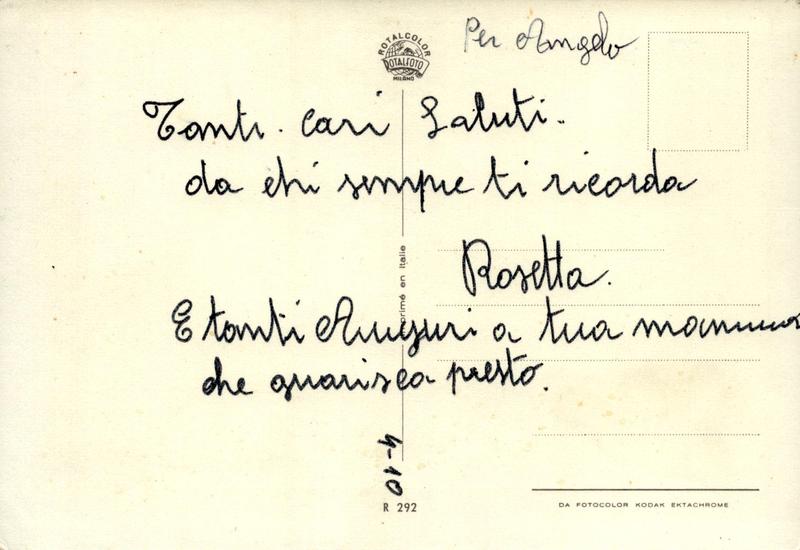 Per Angelo
ROTALCOLOR
ROTALFOTO
MILANO
Tanti. Cari Saluti.
da chi sempre ti ricorda
Rosetta.
E tanti Auguri a tua mamma
che guarisca presto.
primé en Italie
4-10
R 292
DA FOTOCOLOR KODAK EKTACHROME